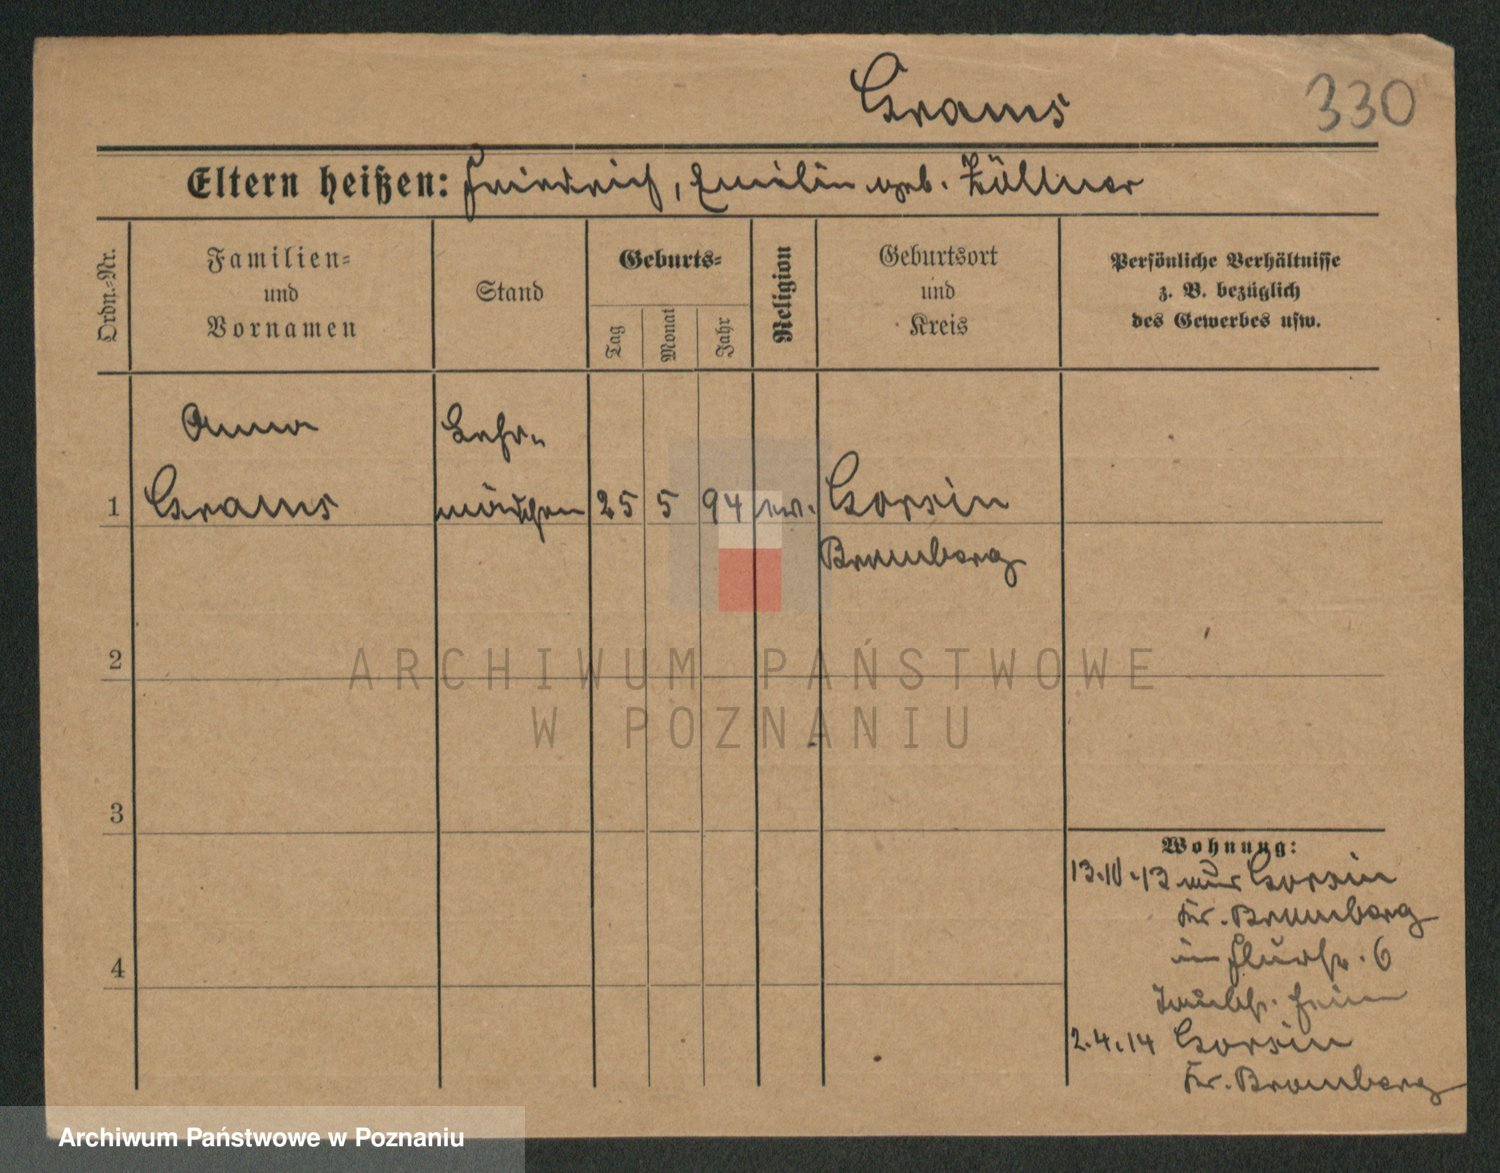 Grams
330
Eltern heißen: Friedrich, Emilie geb. Zöllner
Ordn.-Nr.
Familien-
und
Vornamen
Stand
Geburts-
Tag
Monat
Jahr
Religion
Geburtsort
und
Kreis
Persönliche Verhältnisse
z. B. bezüglich
des Gewerbes usw.
Anna
Lehr-
1 Grams mädchen 25 5 94 ev. Gorsin
Bromberg
2
ARCHIWUM PAŃSTWOWE
W POZNANIU
3
Wohnung:
13.10.13 aus Gorsin
Kr. Bromberg
in 6
4
Taubst. heim
2.4.14 Gorsin
Kr. Bromberg
Archiwum Państwowe w Poznaniu